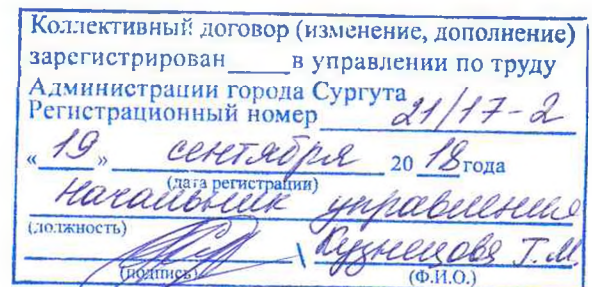 Коллективный договор (изменение, дополнение)
зарегистрирован ____ в управлении по труду
Администрации города Сургута
Регистрационный номер 21/17-2
« 19 » сентября 20 18 года
(дата регистрации)
Начальник управления
(должность)
\ Кузнецова Т.М.
(подпись) (Ф.И.О.)